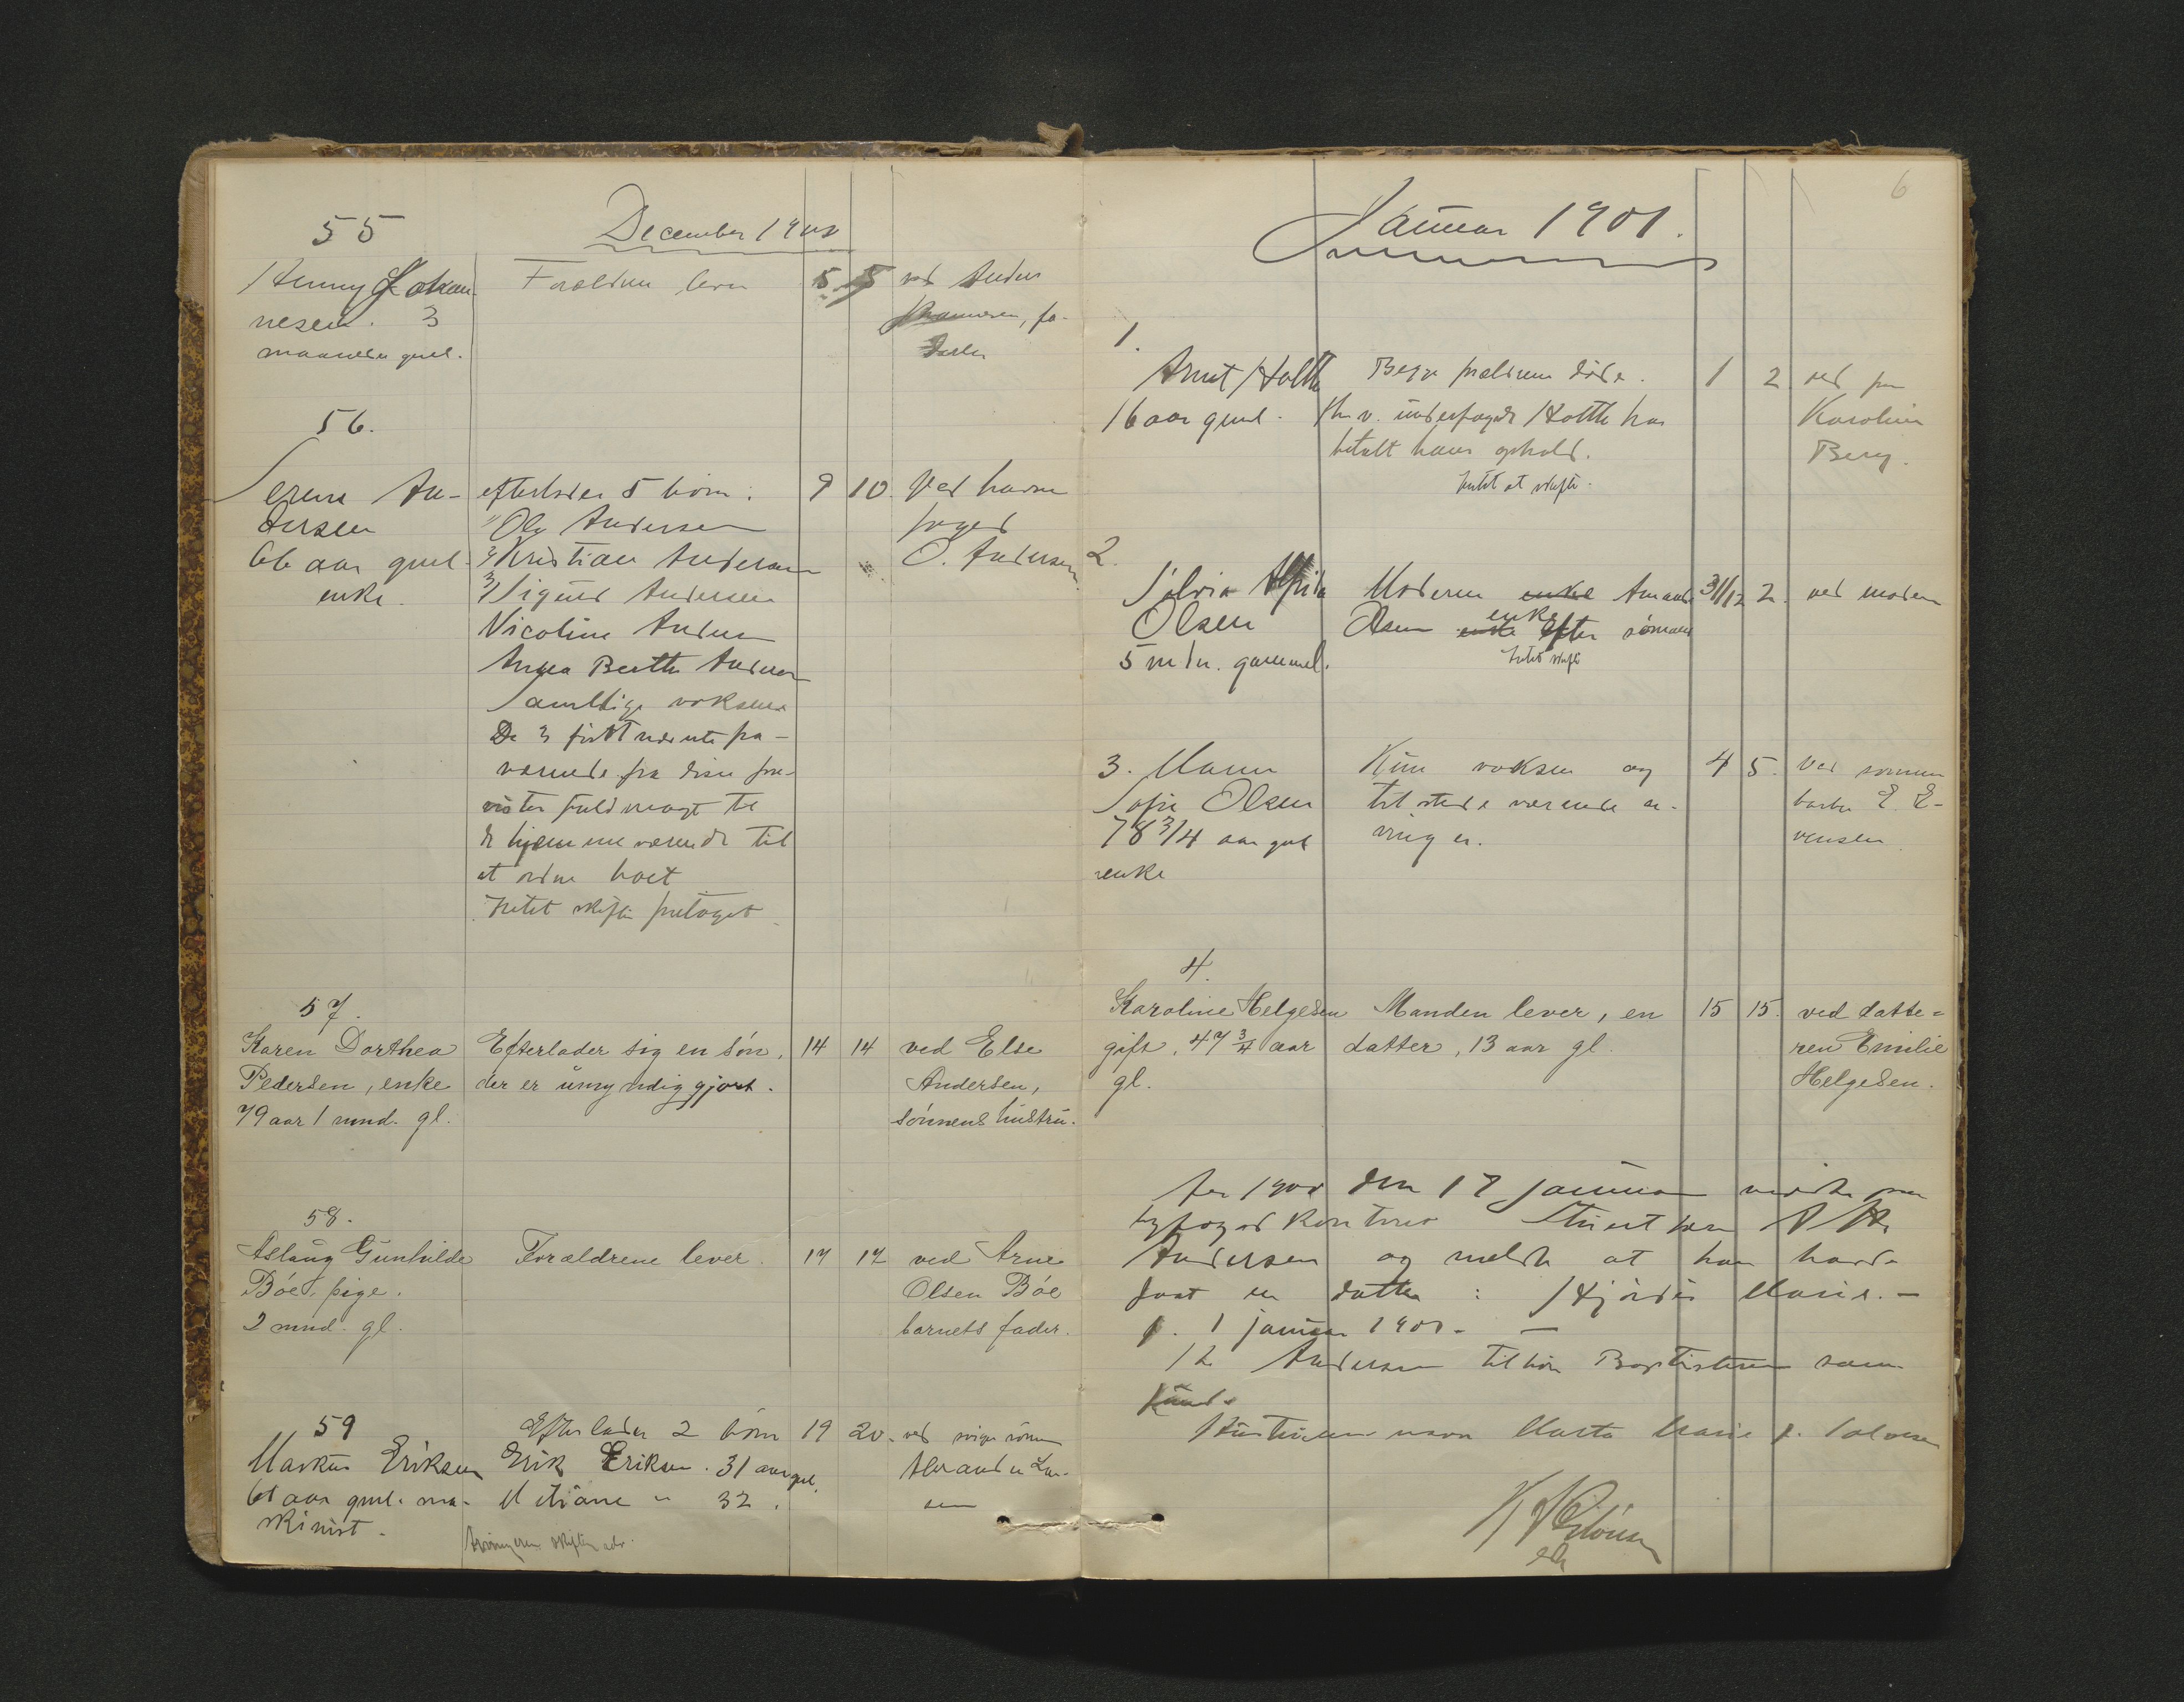 55
December 1900
Henny Johan-
nesen. 3
maaneder gml.
Forældrene lever
5 5
ved Anders
Johannesen, fa-
deren
56.
Serene An-
dersen
66 aar gml.
enke.
efterlader 5 børn:
1) Ole Andersen
2) Kristian Andersen
3) Sigurd Andersen
Nicoline Andersen
Anna Berthe Andersen
Samtlige voksne
De 3 første nævnte fra-
værende fra disse fore-
vistes fuldmagt til
de hjemmeværende til
at ordne boet
Intet skifte foretaget
9 10.
Ved havne
foged
O. Andersen
57.
Karen Dorthea
Pedersen, enke
79 aar 1 mnd. gl.
Efterlader sig en søn,
der er umyndiggjort.
14 14
ved Else
Andersen,
sønnens hustru.
58.
Aslaug Gunhilde
Bøe, pige.
2 mnd. gl.
Forældrene lever.
17 17
ved Arne
Olsen Bøe
barnets fader.
59
Markus Eriksen
61 aar gml. ma-
skinist.
Efterlader 2 børn
Erik Eriksen. 31 aar gml.
" 32.
Arvingerne skifter selv.
19 20.
ved svigersønnen
Alexander Lar-
sen
6
Januar 1901.
1.
Arnt Holth
16 aar gml.
Begge forældrene døde.
Hr v. underfoged Holth har
betalt hans ophold.
Intet at skifte.
1 2
ved fru
Karoline
Berg.
2.
Silvia Alfrida
Olsen
5 mdr. gammel.
Moderen enke Amanda
Olsen enke enke efter sømand
Intet skifte
31/12 2.
ved moderen
3. Maren
Sofie Olsen
78 3/4 aar gml
enke
Kun voksne og
tilstedeværende ar-
vinger.
4 5.
Ved sønnen
barber E. E-
vensen
4.
Karoline Helgesen
gift, 47 3/4 aar
gl.
Manden lever, en
datter, 13 aar gl.
15 15.
ved datte=
ren Emilie
Helgesen.
den 17 januar mødte paa
byfogedkontoret
Andersen og meldte at han havde
faaet en datter: Hjørdis Marie. —
f. 1 januar 1901. —
Hr Andersen tilhører Baptisternes sam-
fund.
Hustruens navn Marta Marie f. Salvesen